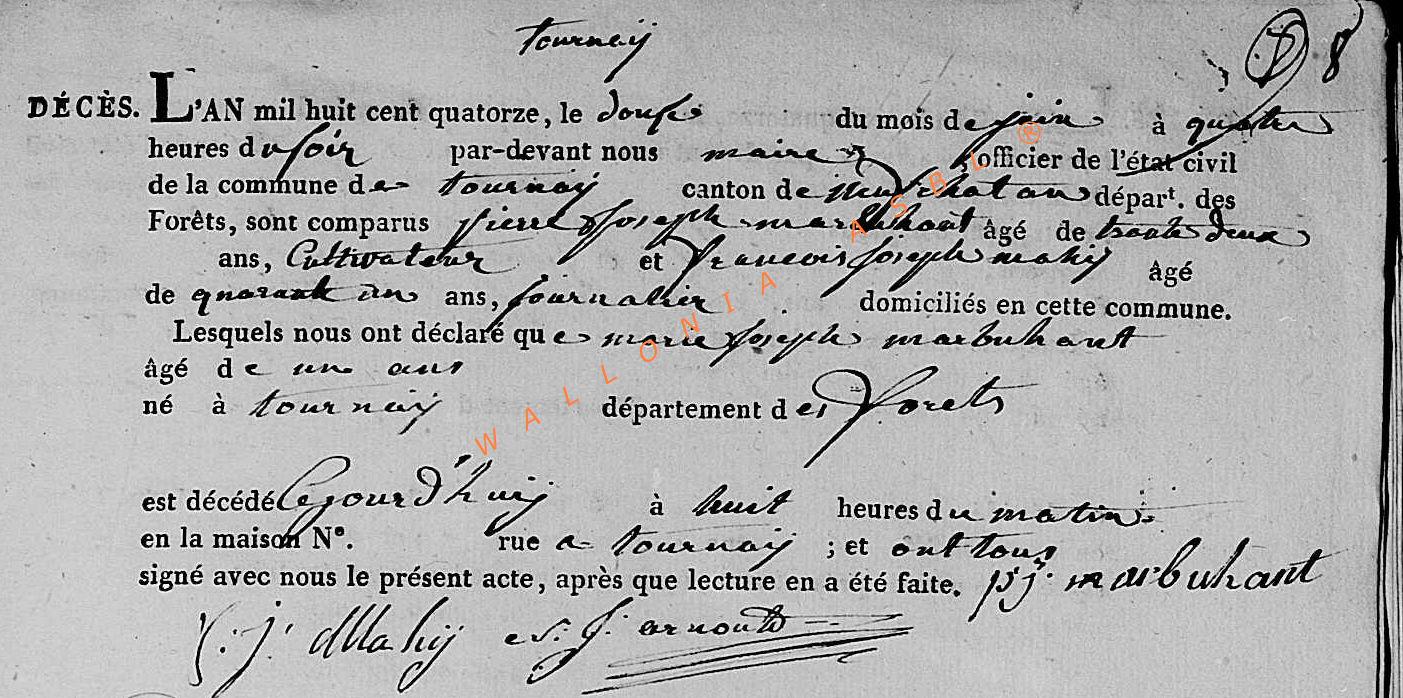 tournaÿ
8
DÉCÈS. L'AN mil huit cent quatorze, le douse du mois de juin à quatre
heures du soir par-devant nous maire officier de l'état civil
de la commune de tournaÿ canton de neufchatau départ. des
Forêts, sont comparus pierre joseph marbuhant âgé de trante deux
ans, Cultivateur et francois joseph mahÿ âgé
de quarante un ans, journalier domiciliés en cette commune.
Lesquels nous ont déclaré que marie joseph marbuhant
âgé de un ans
né à tournaÿ département des forets
est décédé Cejourd'huÿ à huit heures du matin
en la maison N°. rue a tournaÿ ; et ont tous
signé avec nous le présent acte, après que lecture en a été faite. p j marbuhant
f: j: Mahÿ j. arnould
WALLONIA ASBL ®